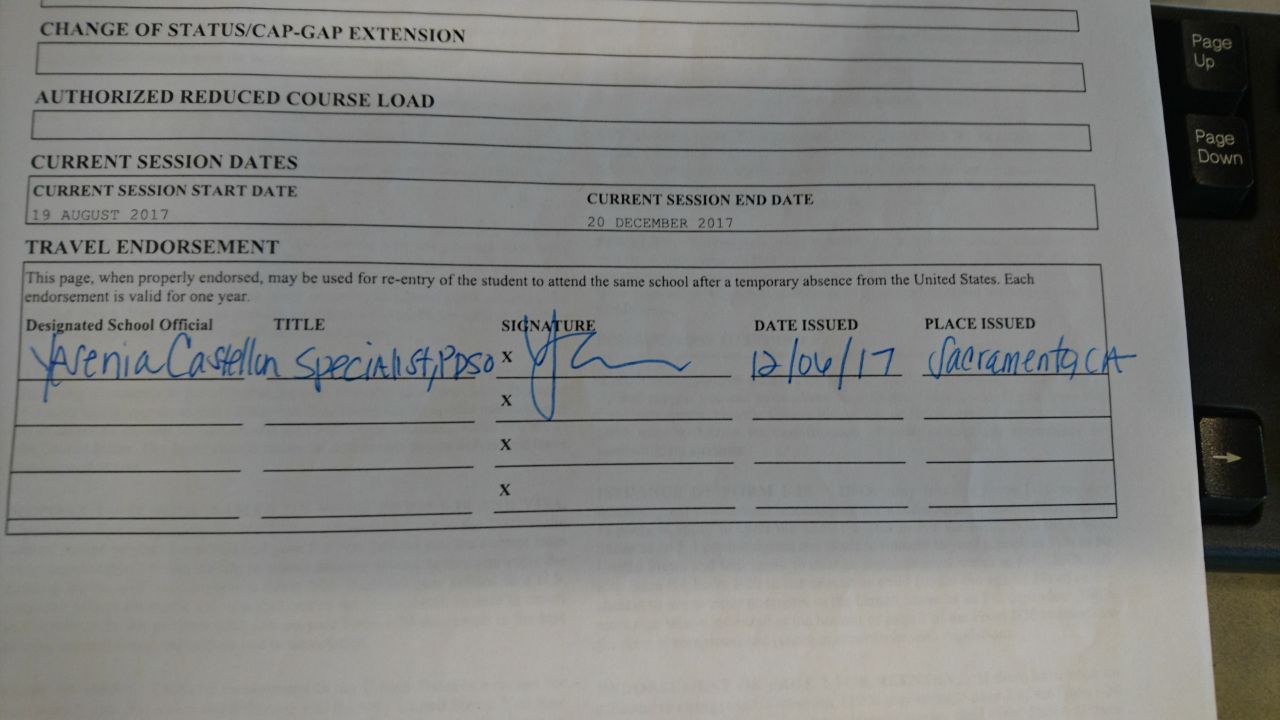 CHANGE OF STATUS/CAP-GAP EXTENSION
AUTHORIZED REDUCED COURSE LOAD
CURRENT SESSION DATES
CURRENT SESSION START DATE
19 AUGUST 2017
CURRENT SESSION END DATE
20 DECEMBER 2017
TRAVEL ENDORSEMENT
This page, when properly endorsed, may be used for re-entry of the student to attend the same school after a temporary absence from the United States. Each
endorsement is valid for one year.
Designated School Official TITLE SIGNATURE DATE ISSUED PLACE ISSUED
Yesenia Castellon Specialist, PDSO X 12/06/17 Sacramento, CA
X
X
X
Page
Up
Page
Down
→